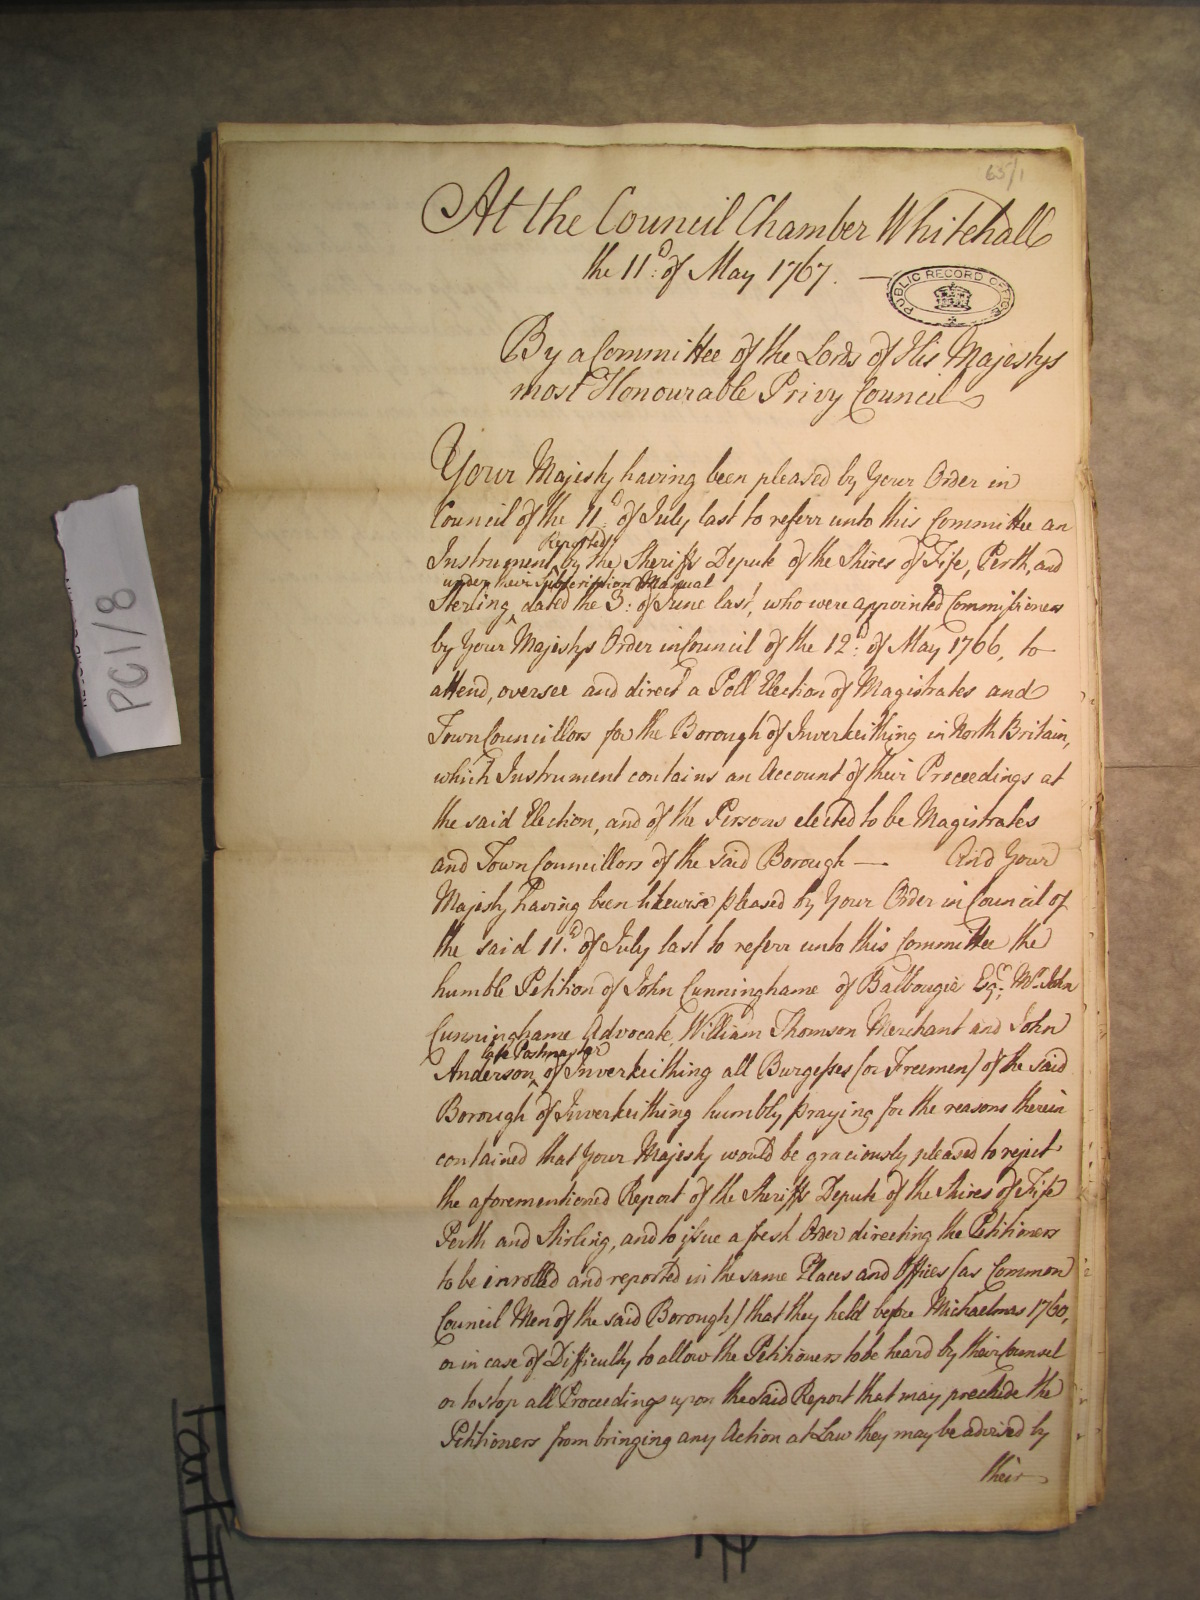 65/1
At the Council Chamber Whitehall
the 11.th of May 1767.
PUBLIC RECORD OFFICE
By a Committee of the Lords of His Majestys
most Honourable Privy Council
Your Majesty having been pleased by Your Order in
Council of the 11.th of July last to referr unto this Committee an
Reported
Instrument ‸ by the Sheriffs Depute of the Shires of Fife, Perth, and
under their subscription Manual
Sterling ‸ dated the 3.d of June last, who were appointed Commissioners
by Your Majestys Order in Council of the 12.th of May 1766, to
attend, oversee and direct a Poll Election of Magistrates and
Town Councillors for the Borough of Inverkeithing in North Britain,
which Instrument contains an Account of their Proceedings at
the said Election, and of the Persons elected to be Magistrates
and Town Councillors of the said Borough — And Your
Majesty having been likewise pleased by Your Order in Council of
the said 11.th of July last to referr unto this Committee the
humble Petition of John Cunninghame of Balbougie Esq.r Mr. John
Cunninghame Advocate, William Thomson Merchant and John
late Postmaster
Anderson ‸ of Inverkeithing all Burgesses (or Freemen) of the said
Borough of Inverkeithing humbly praying for the reasons therein
contained that Your Majesty would be graciously pleased to reject
the aforementioned Report of the Sheriffs Depute of the Shires of Fife
Perth and Stirling, and to issue a fresh Order directing the Petitioners
to be inrolled and reported in the same Places and Offices (as Common
Council Men of the said Borough) that they held before Michaelmas 1760,
or in case of Difficulty to allow the Petitioners to be heard by their Counsel
or to stop all Proceedings upon the said Report that may preclude the
Petitioners from bringing any Action at Law they may be advised by
their
PC1/8